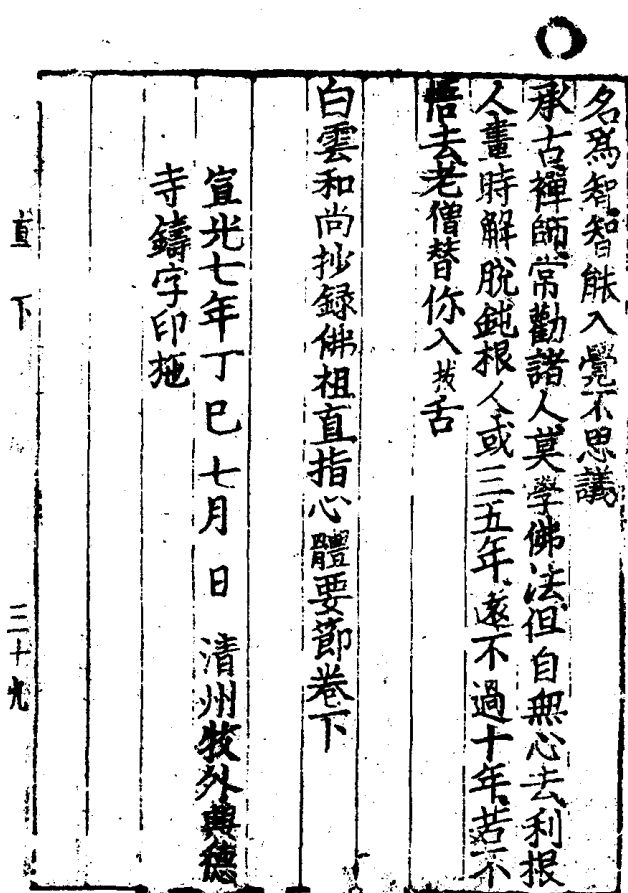 名爲智智能入覺不思議
承古禪師常勸諸人莫學佛法但自無心去利根
人畫時解脫鈍根人或三五年遠不過十年若不
悟去老僧替你入拔舌
白雲和尚抄録佛祖直指心體要節卷下
宣光七年丁巳七月 日 清州牧外興德
寺鑄字印施
直下 三十九